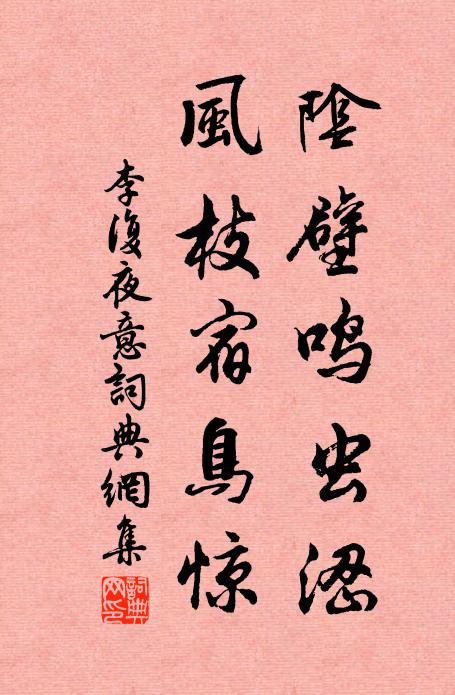 陰壁鳴虫澀
風枝宿鳥惊
李復夜意詞典網集
詞典網印